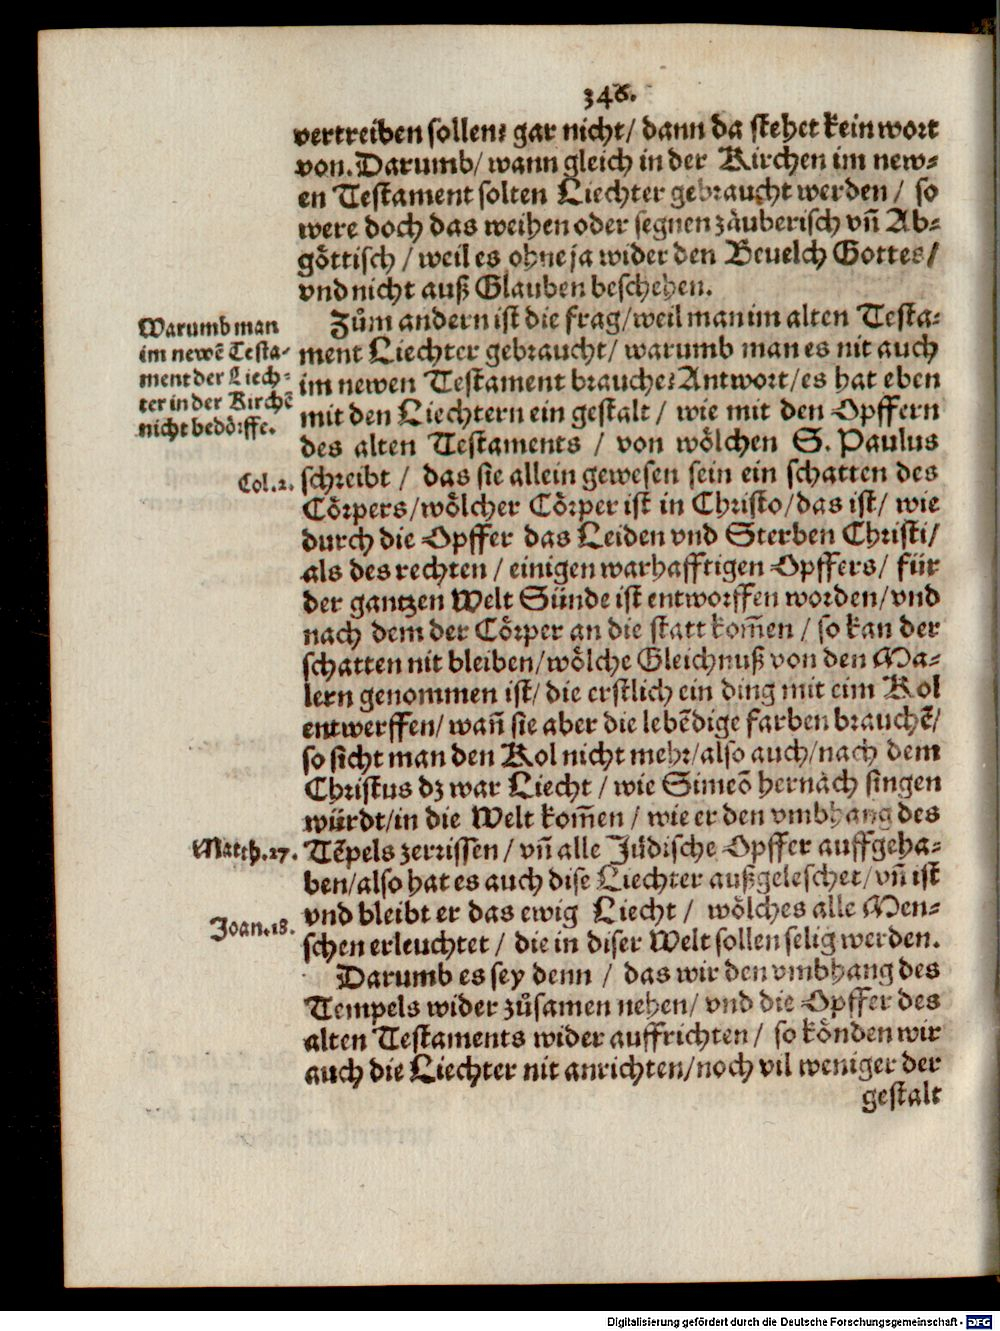 346.
vertreiben sollen? gar nicht/ dann da stehet kein wort
von. Darumb/ wann gleich in der Kirchen im new-
en Testament solten Liechter gebraucht werden/ so
were doch das weihen oder segnen zäuberisch vñ Ab-
göttisch/ weil es ohne ja wider den Beuelch Gottes/
vnd nicht auß Glauben beschehen.
Warumb man
im newẽ Testa-
ment der Liech-
ter in der Kirchẽ
nicht bedörffe.
Zům andern ist die frag/ weil man im alten Testa-
ment Liechter gebraucht/ warumb man es nit auch
im newen Testament brauche? Antwort/ es hat eben
mit den Liechtern ein gestalt/ wie mit den Opffern
des alten Testaments/ von wölchen S. Paulus
Col.2.
schreibt/ das sie allein gewesen sein ein schatten des
Cörpers/ wölcher Cörper ist in Christo/ das ist/ wie
durch die Opffer das Leiden vnd Sterben Christi/
als des rechten/ einigen warhafftigen Opffers/ für
der gantzen Welt Sünde ist entworffen worden/ vnd
nach dem der Cörper an die statt kom̃en/ so kan der
schatten nit bleiben/ wölche Gleichnuß von den Ma-
lern genommen ist/ die erstlich ein ding mit eim Kol
entwerffen/ wañ sie aber die lebẽdige farben brauchẽ/
so sicht man den Kol nicht mehr/ also auch/ nach dem
Christus dz war Liecht/ wie Simeõ hernach singen
würdt/ in die Welt kom̃en/ wie er den vmbhang des
Matth.27.
Tẽpels zerrissen/ vñ alle Jüdische Opffer auffgeha-
ben/ also hat es auch dise Liechter außgeleschet/ vñ ist
vnd bleibt er das ewig Liecht/ wölches alle Men-
Joan.18.
schen erleuchtet/ die in diser Welt sollen selig werden.
Darumb es sey denn/ das wir den vmbhang des
Tempels wider zůsamen nehen/ vnd die Opffer des
alten Testaments wider auffrichten/ so könden wir
auch die Liechter nit anrichten/ noch vil weniger der
gestalt
Digitalisierung gefördert durch die Deutsche Forschungsgemeinschaft - DFG